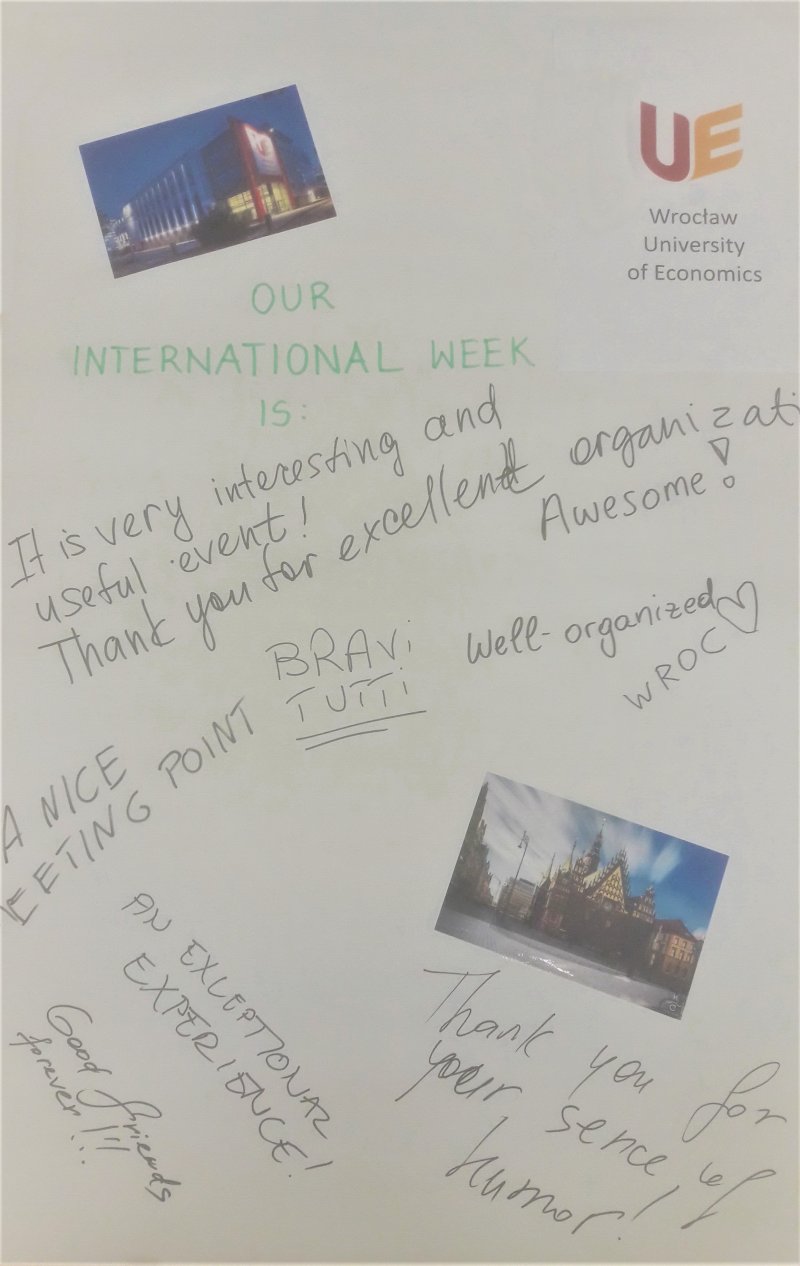 UE
Wrocław
University
of Economics
OUR
INTERNATIONAL WEEK
IS:
It is very interesting and
useful event!
Thank you for excellent organizati
Awesome!
BRAVi
TUTTi
Well-organized
WROC
A NICE
EETING POINT
AN EXCEPTIONAL
EXPERIENCE!
Good friends
forever!!!
Thank you for
your sence of
humor!